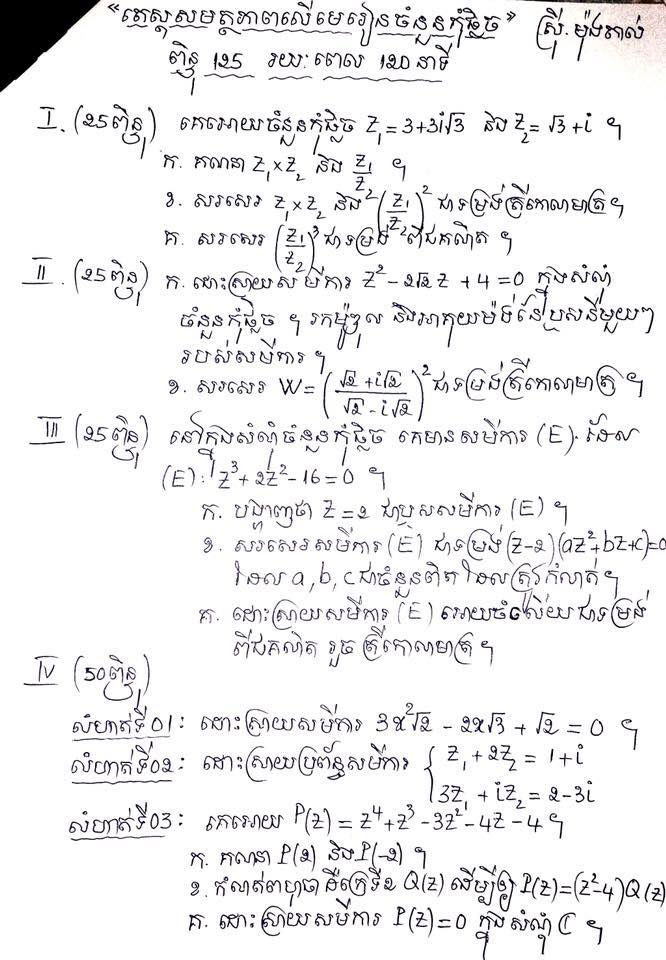 "តេស្តសមត្ថភាពលើមេរៀនចំនួនកុំផ្លិច" ស្រី. ម៉ុងកាល់
ពិន្ទុ 125 រយៈពេល 120 នាទី
I. (25ពិន្ទុ) គេអោយចំនួនកុំផ្លិច Z₁ = 3+3i√3 និង Z₂ = √3 + i ។
ក. គណនា Z₁ × Z₂ និង Z₁/Z₂ ។
ខ. សរសេរ Z₁ × Z₂ និង (Z₁/Z₂)² ជាទម្រង់ត្រីកោណមាត្រ។
គ. សរសេរ (Z₁/Z₂)³ ជាទម្រង់ ពីជគណិត ។
II. (25ពិន្ទុ) ក. ដោះស្រាយសមីការ Z² - 2√2 Z + 4 = 0 ក្នុងសំណុំ
ចំនួនកុំផ្លិច ។ រកម៉ូឌុល និងអាគុយម៉ង់នៃឫសនីមួយៗ
របស់សមីការ ។
ខ. សរសេរ W = ((√2 + i√2)/(√2 - i√2))² ជាទម្រង់ត្រីកោណមាត្រ ។
III (25ពិន្ទុ) នៅក្នុងសំណុំចំនួនកុំផ្លិច គេមានសមីការ (E). ដែល
(E): Z³ + 2Z² - 16 = 0 ។
ក. បង្ហាញថា Z = 2 ជាឫសសមីការ (E) ។
ខ. សរសេរសមីការ (E) ជាទម្រង់ (Z-2)(aZ²+bZ+c)=0
ដែល a, b, c ជាចំនួនពិត ដែលត្រូវកំណត់។
គ. ដោះស្រាយសមីការ (E) អោយចំលើយជាទម្រង់
ពីជគណិត រួច ត្រីកោណមាត្រ ។
IV (50ពិន្ទុ)
លំហាត់ទី01: ដោះស្រាយសមីការ 3x²√2 - 2x√3 + √2 = 0 ។
លំហាត់ទី02: ដោះស្រាយប្រព័ន្ធសមីការ { Z₁ + 2Z₂ = 1 + i
3Z₁ + iZ₂ = 2 - 3i
លំហាត់ទី03: គេអោយ P(Z) = Z⁴ + Z³ - 3Z² - 4Z - 4 ។
ក. គណនា P(2) និង P(-2) ។
ខ. កំណត់ពហុធា ដឺក្រេទី2 Q(Z) ដើម្បីឲ្យ P(Z)=(Z²-4)Q(Z)
គ. ដោះស្រាយសមីការ P(Z) = 0 ក្នុងសំណុំ ℂ ។